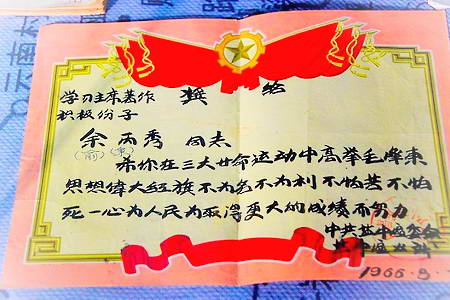 学习主席著作 獎给
积极份子
余丙秀 同志
希你在三大革命运动中高举毛澤東
思想偉大红旗不为名不为利不怕苦不怕
死一心为人民为取得更大的成绩而努力
中共盐中區委会
1966.8.
云南